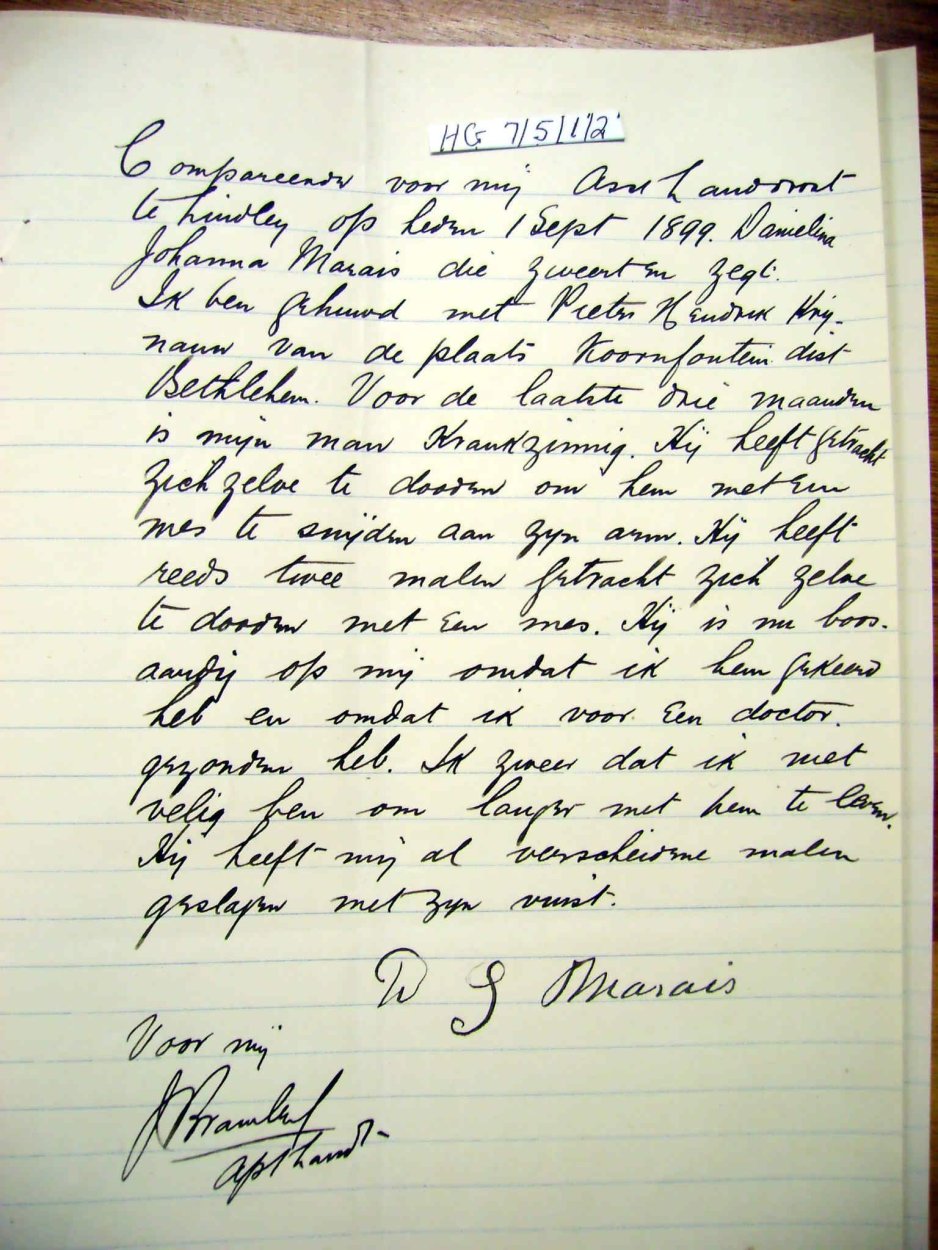 HG 7/5/1/2
Compareerde voor mij Asst Landdrost
te Lindley op heden 1 Sept 1899. Danielina
Johanna Marais die zweert en zegt:
Ik ben gehuwd met Pieter Hendrik Krij-
nauw van de plaats Koornfontein dist
Bethlehem. Voor de laatste drie maanden
is mijn man Krankzinnig. Hij heeft getracht
zich zelve te dooden om hem met een
mes te snijden aan zyn arm. Hij heeft
reeds twee malen getracht zich zelve
te dooden met een mes. Hij is nu boos-
aardig op mij omdat ik hem gekeerd
heb en omdat ik voor een doctor.
gezonden heb. Ik zweer dat ik niet
velig ben om langer met hem te leven.
Hij heeft mij al verscheidene malen
geslagen met zyn vuist.
D J Marais
Voor mij